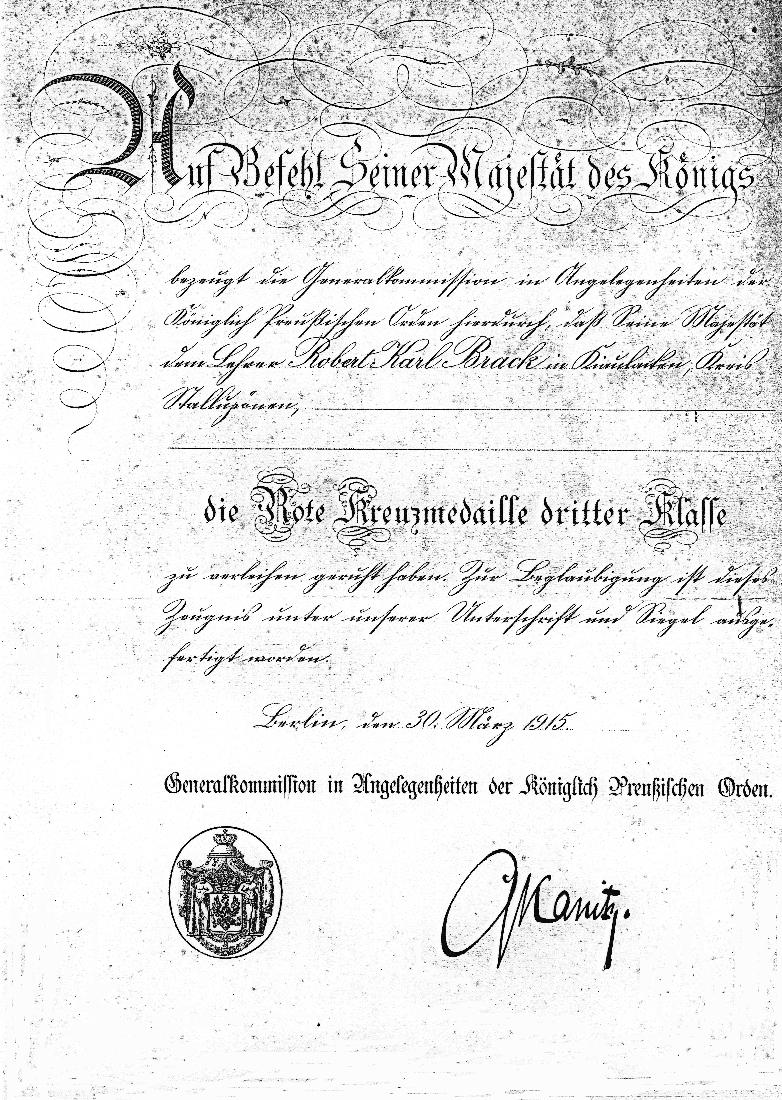 Auf Befehl Seiner Majestät des Königs
bezeugt die Generalkommission in Angelegenheiten der
Königlich Preußischen Orden hierdurch, daß Seine Majestät
dem Lehrer Robert Karl Brack in Kiaulacken, Kreis
Stallupönen,
die Rote Kreuzmedaille dritter Klasse
zu verleihen geruht haben. Zur Beglaubigung ist dieses
Zeugnis unter unserer Unterschrift und Siegel ausge-
fertigt worden.
Berlin, den 30. März 1915.
Generalkommission in Angelegenheiten der Königlich Preußischen Orden.
Kanitz.